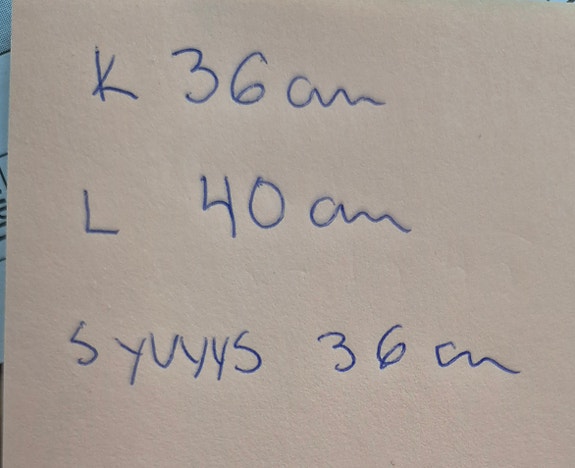 K 36 cm
L 40 cm
SYVYYS 36 cm